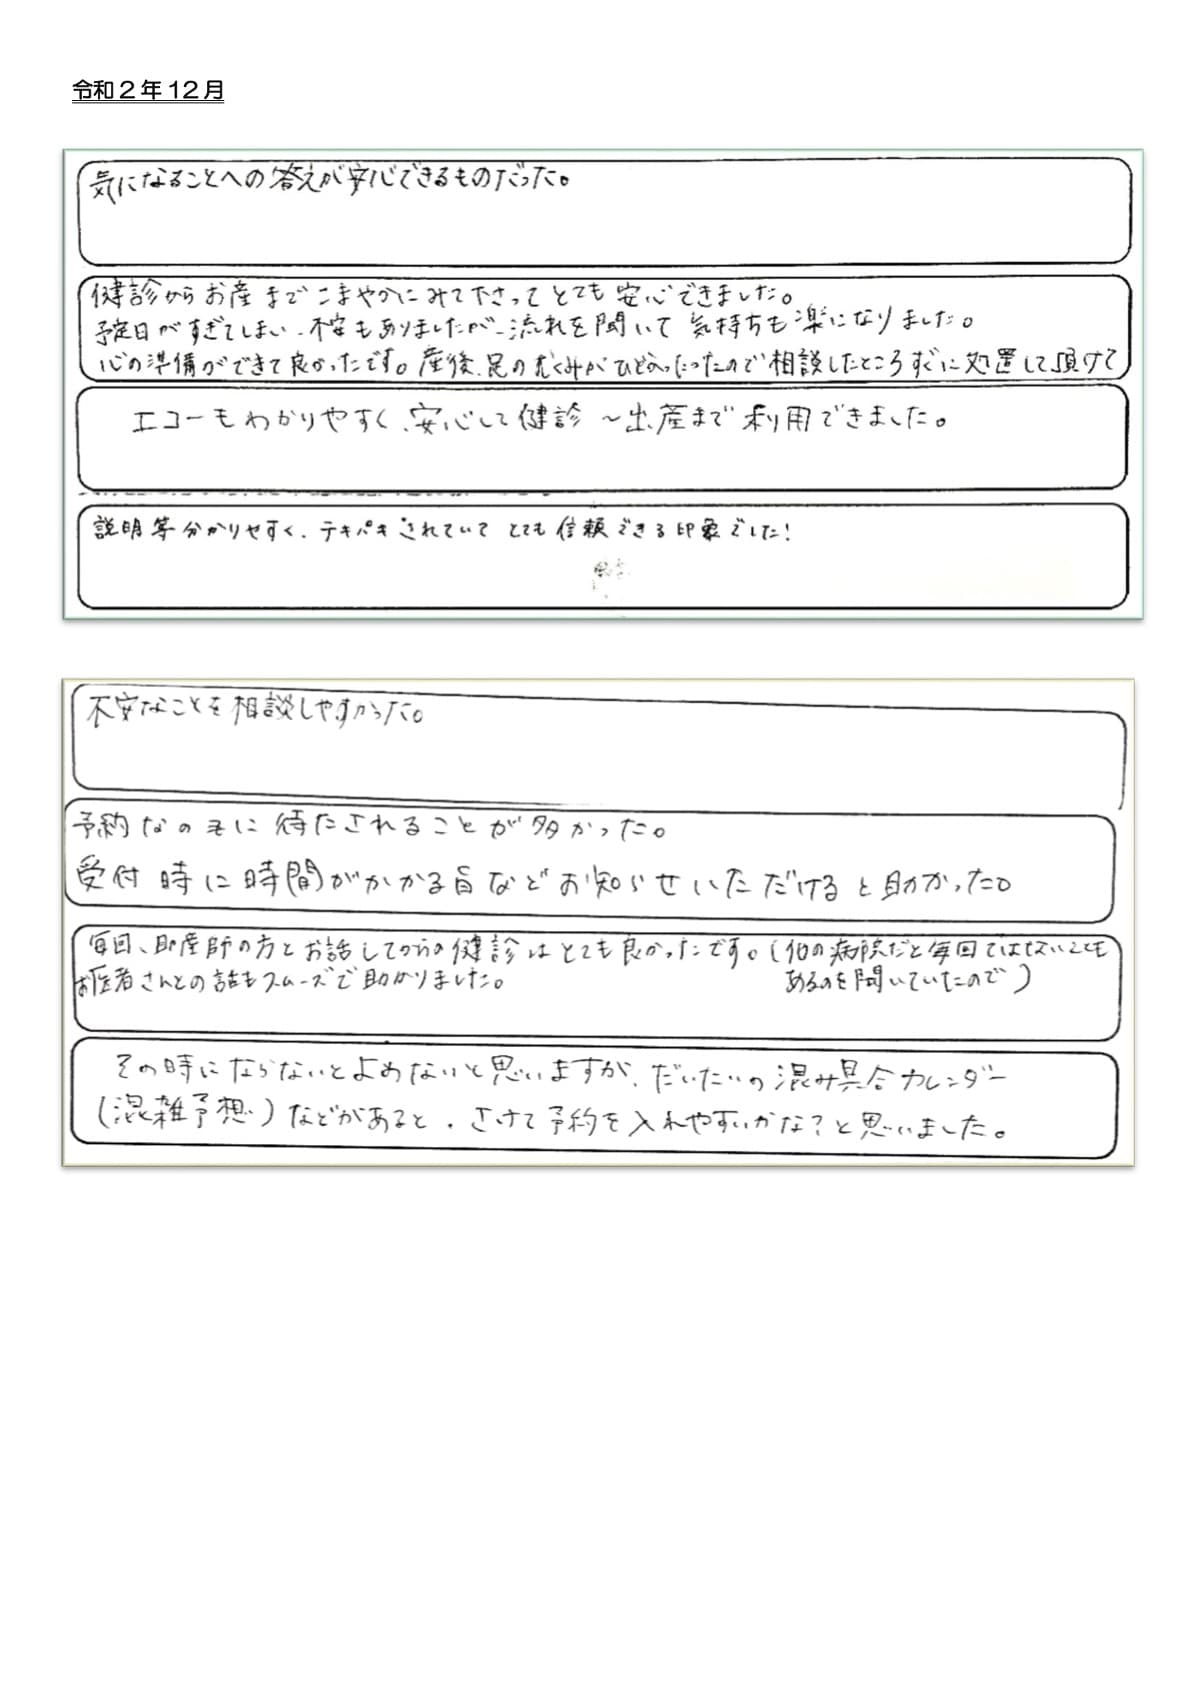 令和2年12月
気になることへの答えが安心できるものだった。
健診からお産までこまやかにみて下さってとても安心できました。
予定日がすぎてしまい、不安もありましたが、流れを聞いて気持ちも楽になりました。
心の準備ができて良かったです。産後、足のむくみがひどかったので相談したところすぐに処置して頂けて
エコーもわかりやすく、安心して健診～出産まで利用できました。
説明等分かりやすく、テキパキされていてとても信頼できる印象でした!
不安なことを相談しやすかった。
予約なのに待たされることが多かった。
受付時に時間がかかる旨などお知らせいただけると助かった。
毎回、助産師の方とお話してからの健診はとても良かったです。(他の病院だと毎回ではないことも
お医者さんとの話もスムーズで助かりました。 あるのを聞いていたので)
その時にならないとよめないと思いますが、だいたいの混み具合カレンダー
(混雑予想)などがあると、さけて予約を入れやすいかな?と思いました。